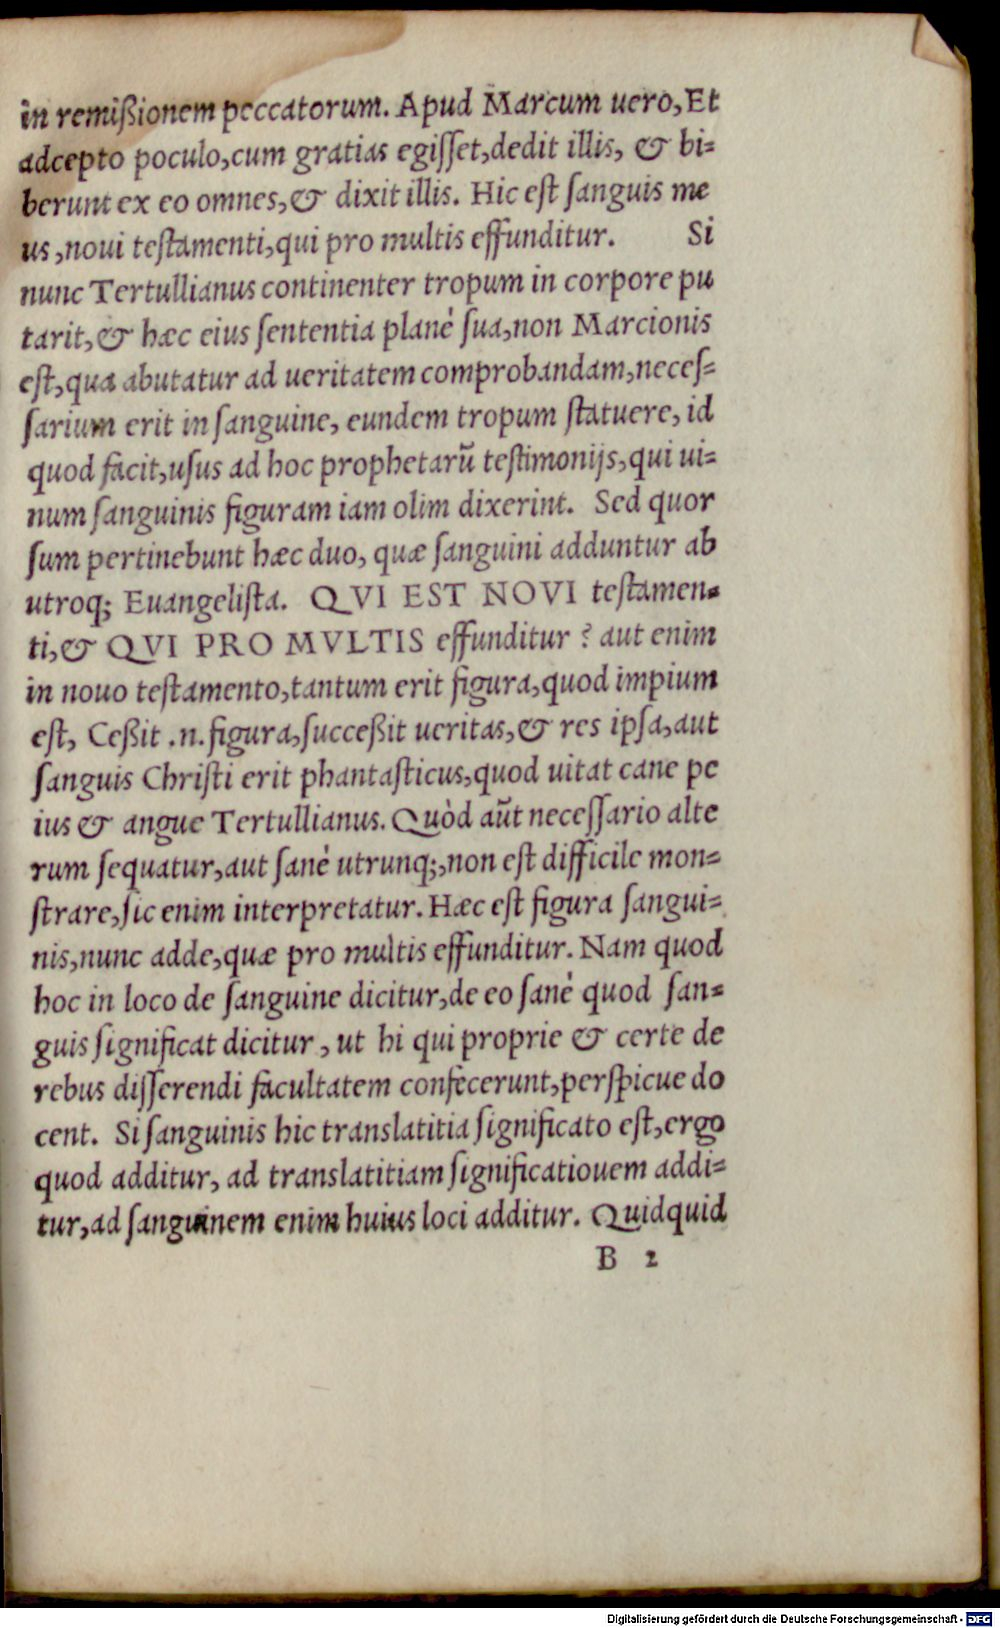 in remißionem peccatorum. Apud Marcum uero, Et
adcepto poculo, cum gratias egiſſet, dedit illis, & bi=
berunt ex eo omnes, & dixit illis. Hic eſt ſanguis me
us, noui teſtamenti, qui pro multis effunditur. Si
nunc Tertullianus continenter tropum in corpore pu
tarit, & hæc eius ſententia planè ſua, non Marcionis
eſt, qua abutatur ad ueritatem comprobandam, neceſ=
ſarium erit in ſanguine, eundem tropum ſtatuere, id
quod facit, uſus ad hoc prophetarũ teſtimonijs, qui ui=
num ſanguinis figuram iam olim dixerint. Sed quor
ſum pertinebunt hæc duo, quæ ſanguini adduntur ab
utroq; Euangeliſta. QVI EST NOVI teſtamen=
ti, & QVI PRO MVLTIS effunditur? aut enim
in nouo teſtamento, tantum erit figura, quod impium
eſt, Ceßit .n. figura, ſucceßit ueritas, & res ipſa, aut
ſanguis Chriſti erit phantaſticus, quod uitat cane pe
ius & angue Tertullianus. Quòd aũt neceſſario alte
rum ſequatur, aut ſanè utrunq;, non eſt difficile mon=
ſtrare, ſic enim interpretatur. Hæc eſt figura ſangui=
nis, nunc adde, quæ pro multis effunditur. Nam quod
hoc in loco de ſanguine dicitur, de eo ſanè quod ſan=
guis ſignificat dicitur, ut hi qui proprie & certe de
rebus diſſerendi facultatem confecerunt, perſpicue do
cent. Si ſanguinis hic translatitia ſignificato eſt, ergo
quod additur, ad translatitiam ſignificatiouem addi=
tur, ad ſanguinem enim huius loci additur. Quidquid
B 2
Digitalisierung gefördert durch die Deutsche Forschungsgemeinschaft - DFG